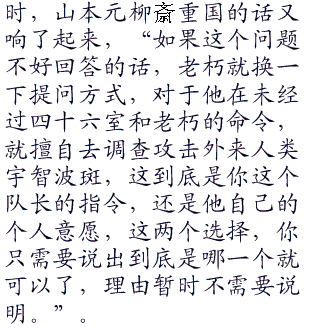 时，山本元柳斎重国的话又
响了起来，“如果这个问题
不好回答的话，老朽就换一
下提问方式，对于他在未经
过四十六室和老朽的命令，
就擅自去调查攻击外来人类
宇智波斑，这到底是你这个
队长的指令，还是他自己的
个人意愿，这两个选择，你
只需要说出到底是哪一个就
可以了，理由暂时不需要说
明。”。